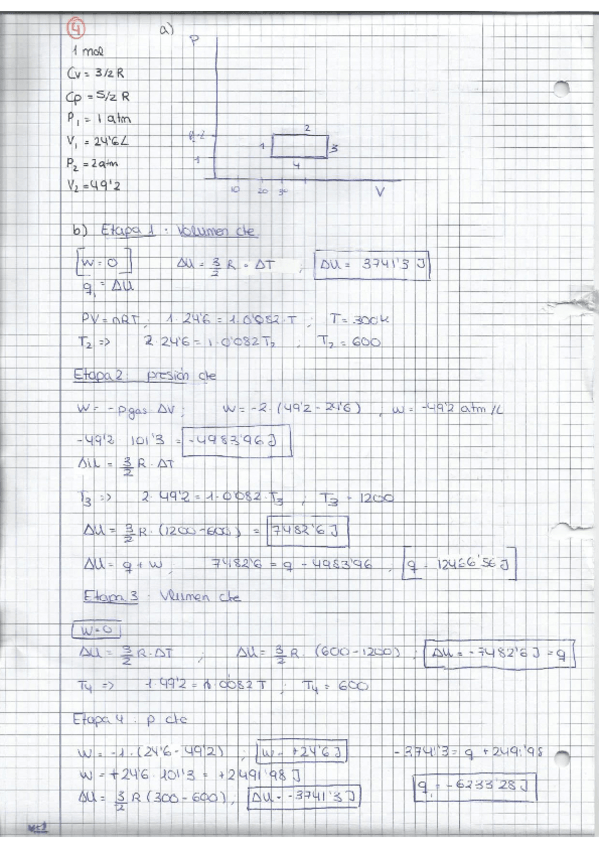 4 a)
P
1 mol
Cv = 3/2 R
Cp = 5/2 R
P1 = 1 atm
V1 = 24'6 L
P2 = 2 atm
V2 = 49'2
2
1
3
4
1
10 20 30
V
b) Etapa 1: Volumen cte
W = 0 ΔU = 3/2 R = ΔT ; ΔU = 3741'3 J
q1 = ΔU
PV = nRT; 1·24'6 = 1·0'082·T ; T = 300K
T2 => 2·24'6 = 1·0'082 T2 ; T2 = 600
Etapa 2: presión cte
W = -Pgas ΔV ; W = -2·(49'2 - 24'6) , w = -49'2 atm/L
-49'2 101'3 = -4983'96 J
ΔU = 3/2 R·ΔT
T3 => 2·49'2 = 1·0'082·T3 ; T3 - 1200
ΔU = 3/2 R·(1200-600) = 7482'6 J
ΔU = q + w , 7482'6 = q - 4983'96 , q = 12466'56 J
Etapa 3: Volumen cte
W=0
ΔU = 3/2 R·ΔT ; ΔU = 3/2 R (600-1200) ; ΔU = -7482'6 J = q
T4 => 1·49'2 = 1·0'082 T ; T4 = 600
Etapa 4: p cte
W = -1·(24'6 - 49'2) ; W = +24'6 J -3741'3 = q + 2491'98
W = +24'6·101'3 = +2491'98 J
ΔU = 3/2 R (300-600) , ΔU = -3741'3 J q1 = -6233'28 J